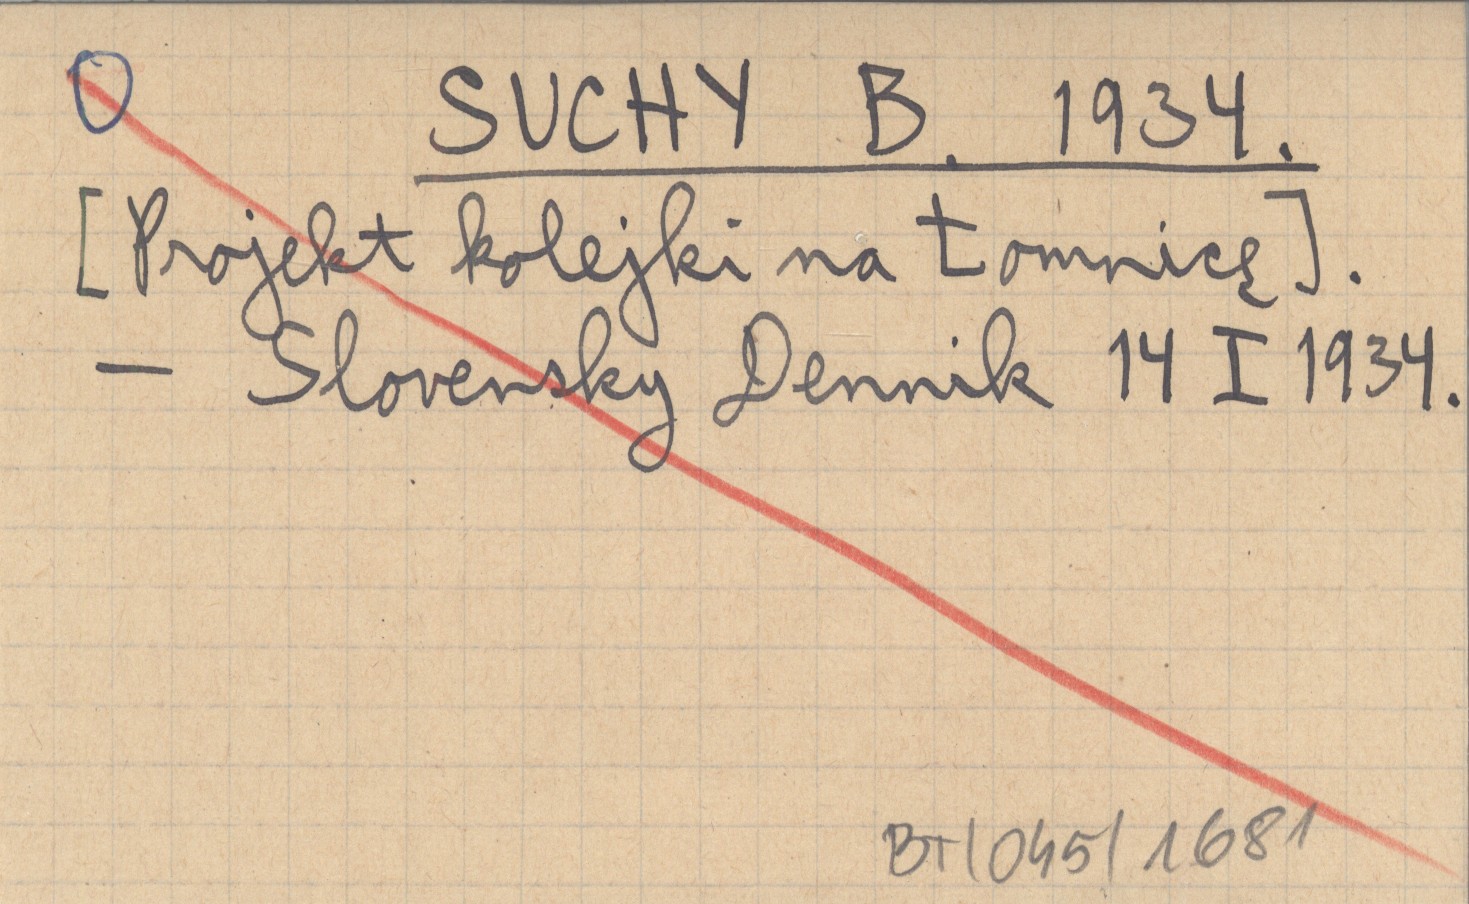 SUCHY B. 1934.
[Projekt kolejki na Łomnicę].
— Slovensky Dennik 14 I 1934.
BT/045/1681